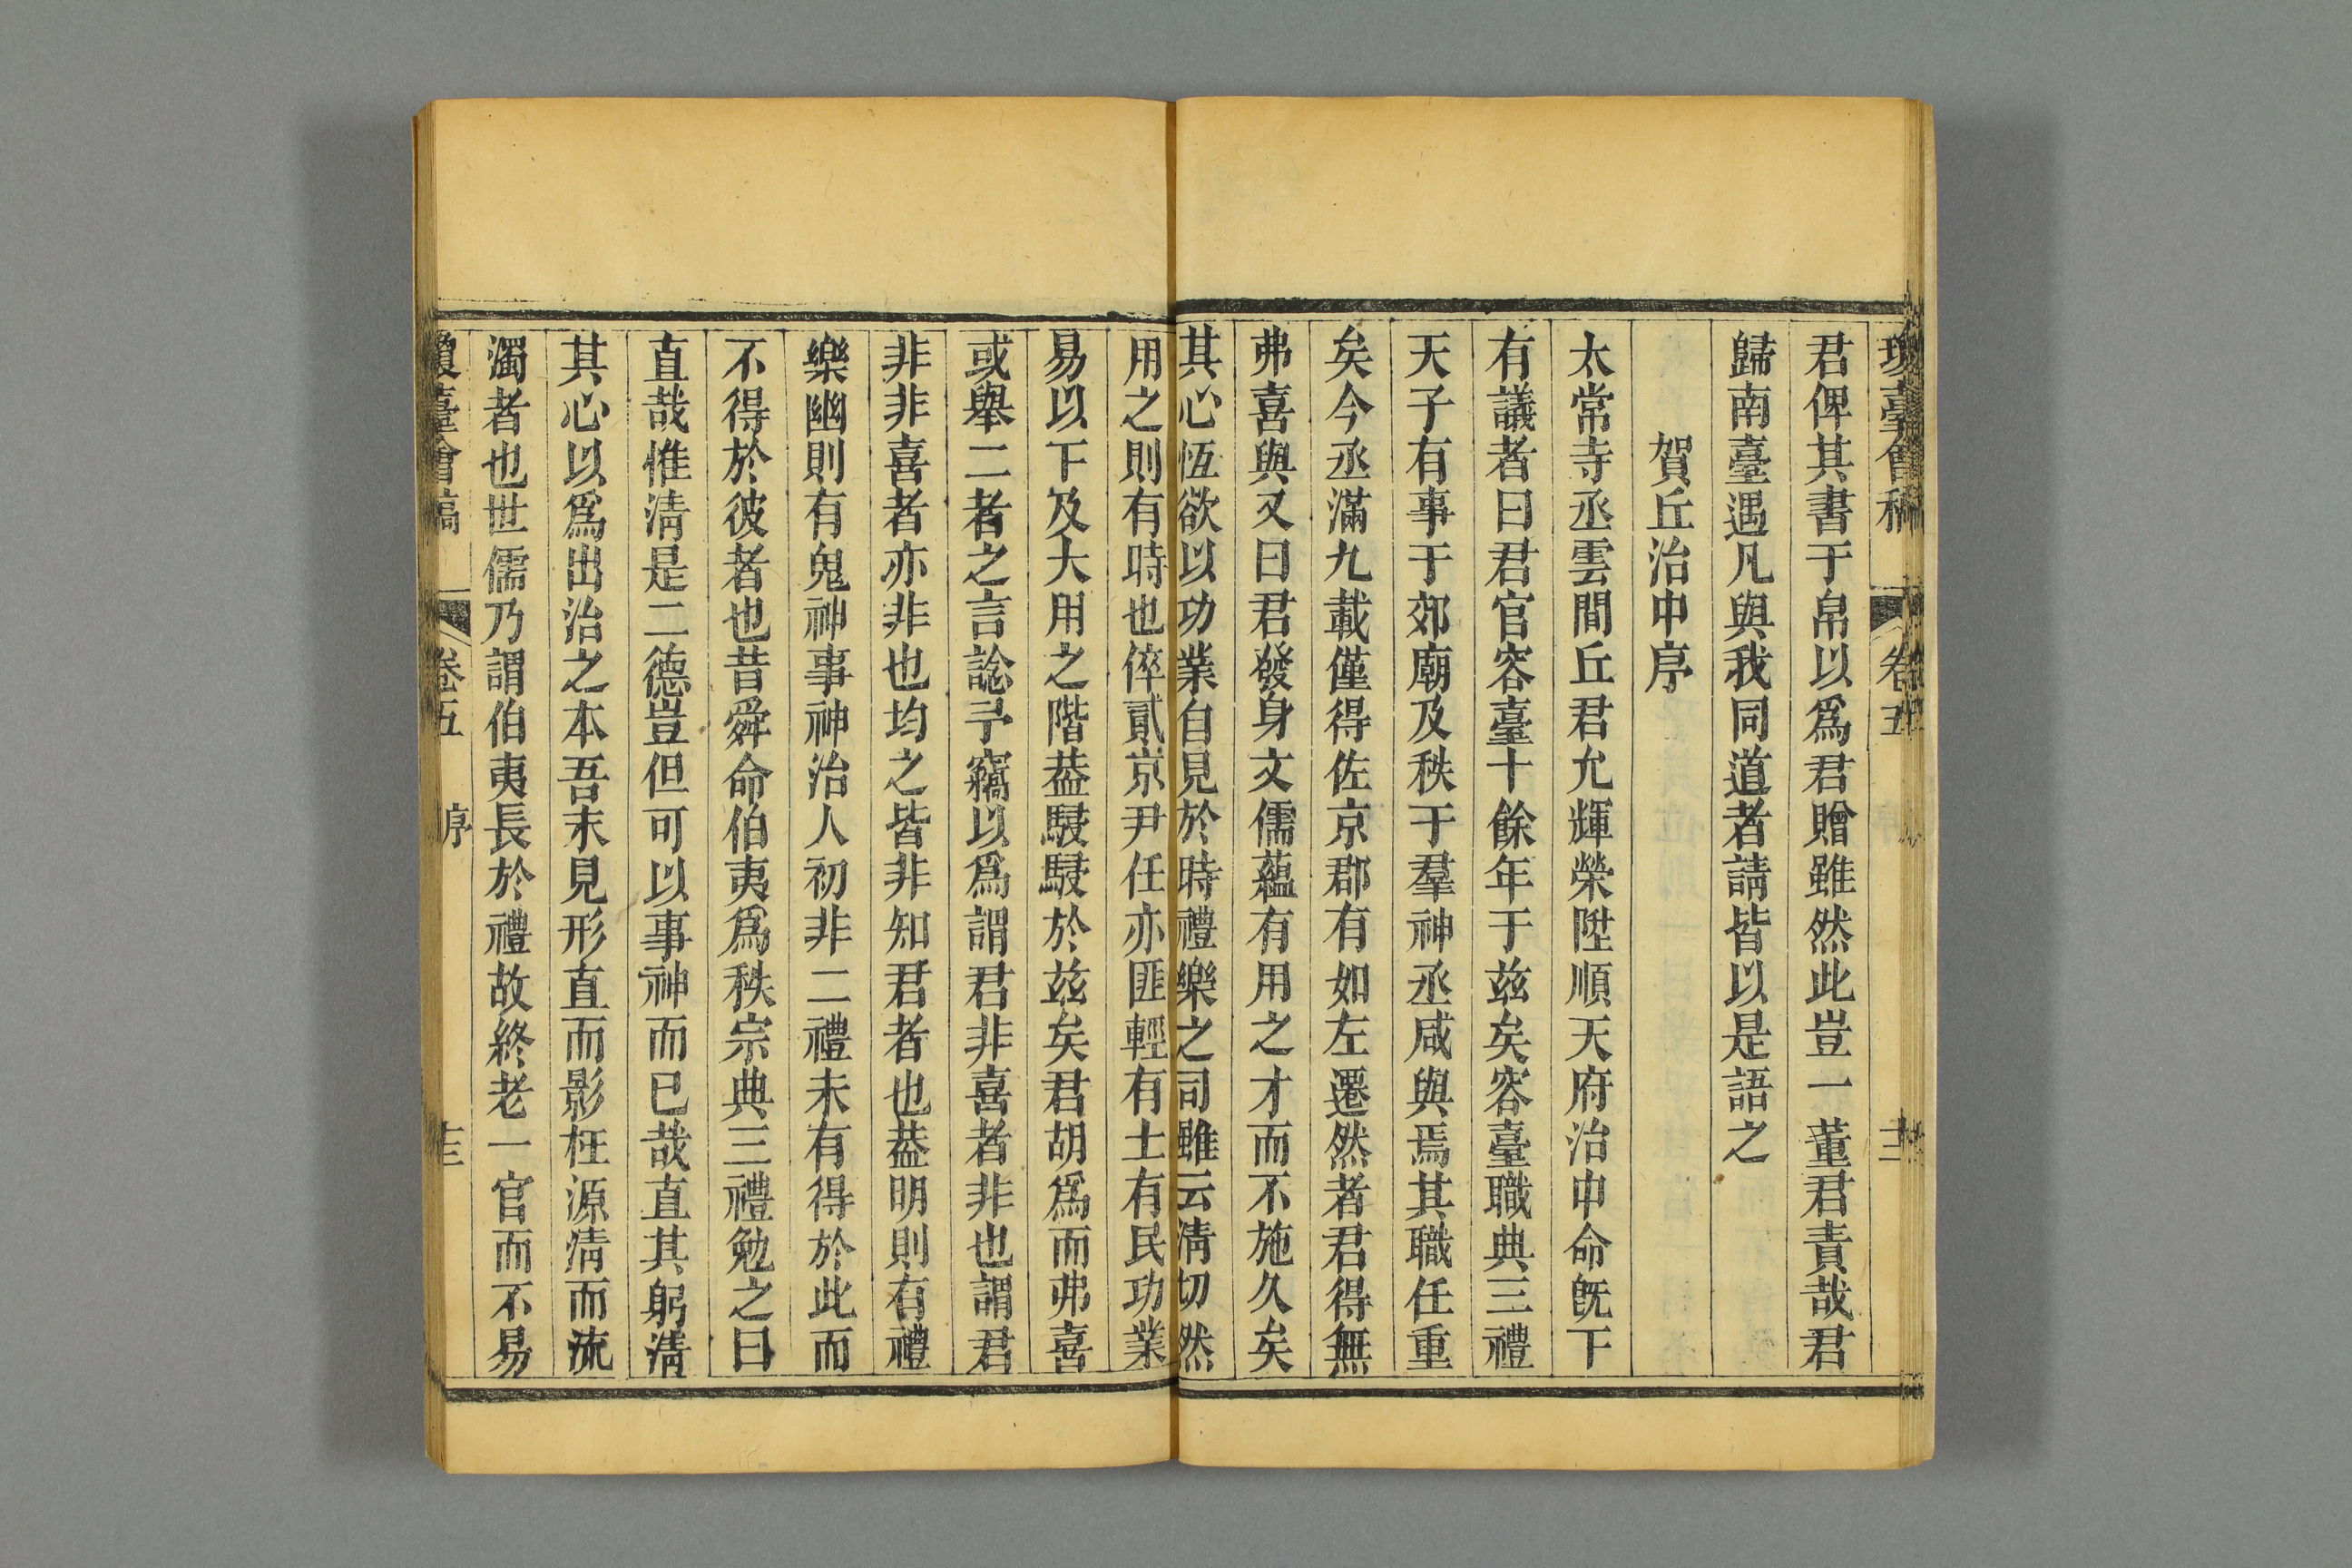 瓊臺會稿 卷五 十二
君俾其書于帛以爲君贈雖然此豈一董君責哉君
歸南臺遇凡與我同道者請皆以是語之
賀丘治中序
太常寺丞雲間丘君允輝榮陞順天府治中命旣下
有議者曰君官容臺十餘年于兹矣容臺職典三禮
天子有事于郊廟及秩于羣神丞咸與焉其職任重
矣今丞滿九載僅得佐京郡有如左遷然者君得無
弗喜與又曰君發身文儒蘊有用之才而不施久矣
其心恆欲以功業自見於時禮樂之司雖云淸切然
用之則有時也倅貳京尹任亦匪輕有土有民功業
易以下及大用之階葢駸駸於兹矣君胡爲而弗喜
或舉二者之言諗予竊以爲謂君非喜者非也謂君
非非喜者亦非也均之皆非知君者也葢明則有禮
樂幽則有鬼神事神治人初非二禮未有得於此而
不得於彼者也昔舜命伯夷爲秩宗典三禮勉之曰
直哉惟淸是二德豈但可以事神而已哉直其躬淸
其心以爲出治之本吾未見形直而影枉源淸而流
濁者也世儒乃謂伯夷長於禮故終老一官而不易
瓊臺會稿 卷五 序 十三